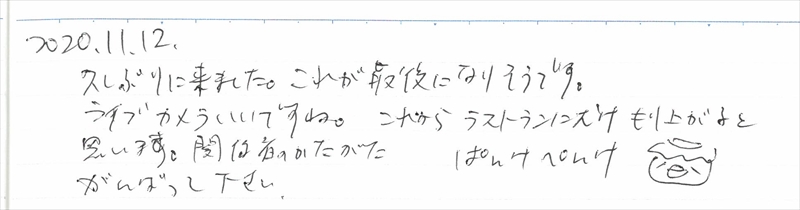 2020.11.12.
久しぶりに来ました。これが最後になりそうです。
ライブカメラいいですね。これからラストランにむけもり上がると
思います。関係者のかたがた ぱんけぺんけ
がんばって下さい